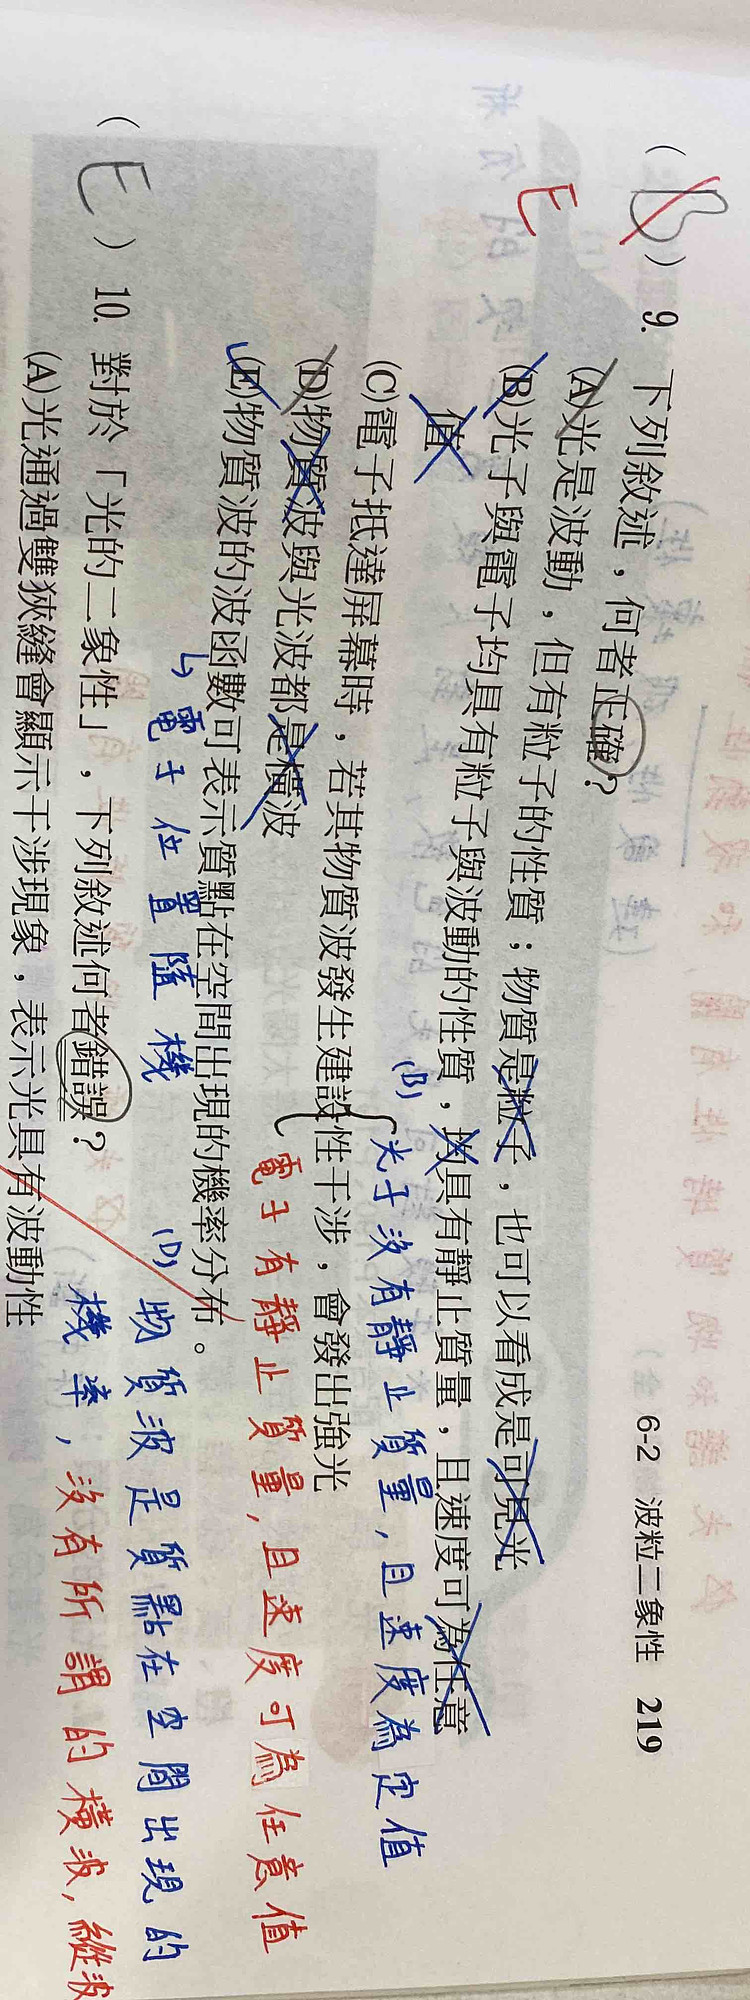 6-2 波粒二象性 219
(B) 9. 下列敘述，何者正確？
E
(A)光是波動，但有粒子的性質；物質是粒子，也可以看成是可見光
(B)光子與電子均具有粒子與波動的性質，均具有靜止質量，且速度可為任意
值
(B) 光子沒有靜止質量，且速度為定值
(C)電子抵達屏幕時，若其物質波發生建設性干涉，會發出強光
電子有靜止質量，且速度可為任意值
(D)物質波與光波都是橫波
(E)物質波的波函數可表示質點在空間出現的機率分布。
↳電子位置隨機
(D) 物質波是質點在空間出現的
機率，沒有所謂的橫波，縱波
(E) 10. 對於「光的二象性」，下列敘述何者錯誤？
(A)光通過雙狹縫會顯示干涉現象，表示光具有波動性